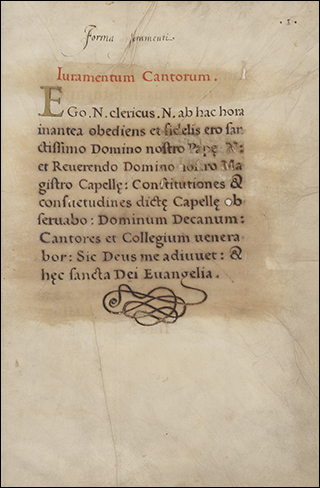 · 1 ·
Forma Juramenti.
Iuramentum Cantorum.
EGo .N. clericus .N. ab hac hora
inantea obediens et fidelis ero san
ctissimo Domino nostro Papę .N:
et Reverendo Domino Ma
gistro Capellę: Constitutiones &
consuetudines dictę Capellę ob
servabo: Dominum Decanum:
Cantores et Collegium venera
bor: Sic Deus me adiuvet: &
hęc sancta Dei Euangelia.